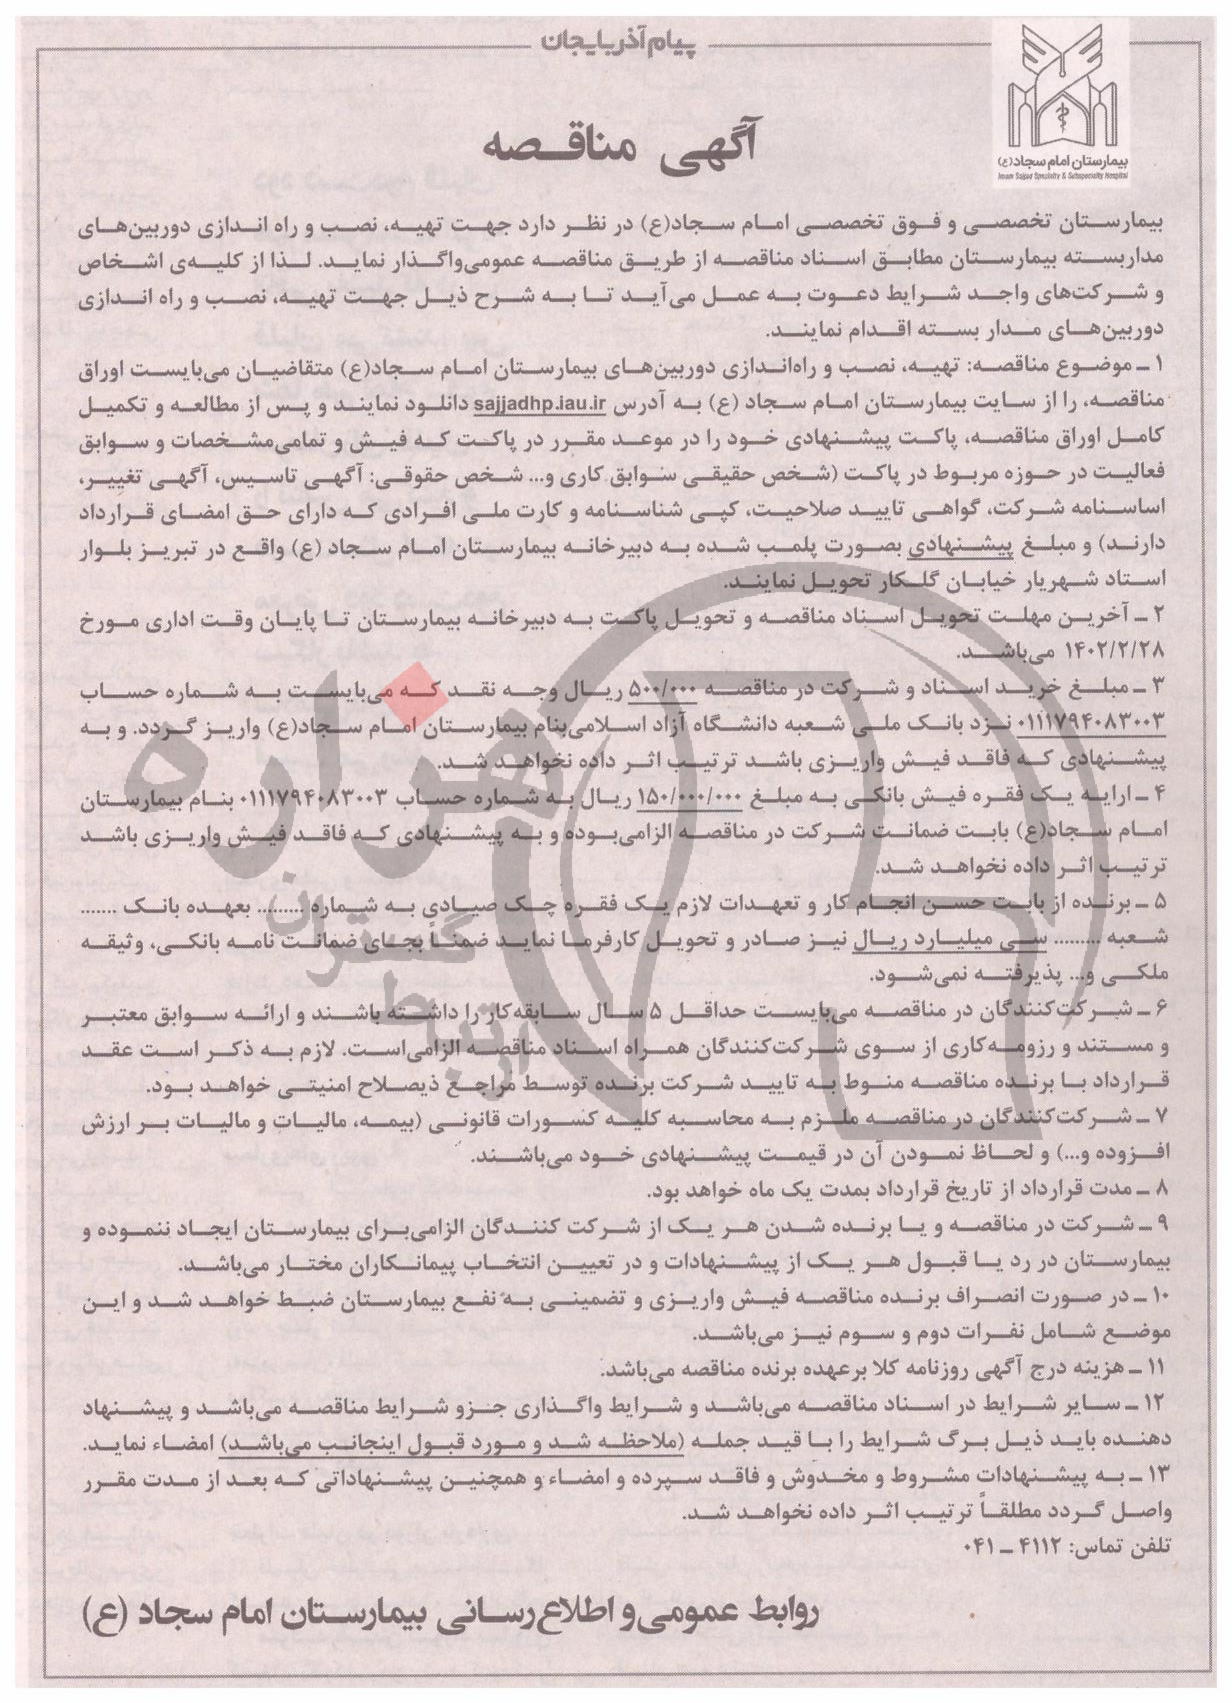 پیام آذربایجان
بیمارستان امام سجاد(ع)
Imam Sajjad Specialty & Subspecialty Hospital
آگهی مناقصه
بیمارستان تخصصی و فوق تخصصی امام سجاد(ع) در نظر دارد جهت تهیه، نصب و راه اندازی دوربین‌های
مداربسته بیمارستان مطابق اسناد مناقصه از طریق مناقصه عمومی‌واگذار نماید. لذا از کلیه‌ی اشخاص
و شرکت‌های واجد شرایط دعوت به عمل می‌آید تا به شرح ذیل جهت تهیه، نصب و راه اندازی
دوربین‌های مدار بسته اقدام نمایند.
۱ ـ موضوع مناقصه: تهیه، نصب و راه‌اندازی دوربین‌های بیمارستان امام سجاد(ع) متقاضیان می‌بایست اوراق
مناقصه، را از سایت بیمارستان امام سجاد (ع) به آدرس sajjadhp.iau.ir دانلود نمایند و پس از مطالعه و تکمیل
کامل اوراق مناقصه، پاکت پیشنهادی خود را در موعد مقرر در پاکت که فیش و تمامی‌مشخصات و سوابق
فعالیت در حوزه مربوط در پاکت (شخص حقیقی سوابق کاری و... شخص حقوقی: آگهی تاسیس، آگهی تغییر،
اساسنامه شرکت، گواهی تایید صلاحیت، کپی شناسنامه و کارت ملی افرادی که دارای حق امضای قرارداد
دارند) و مبلغ پیشنهادی بصورت پلمب شده به دبیرخانه بیمارستان امام سجاد (ع) واقع در تبریز بلوار
استاد شهریار خیابان گلکار تحویل نمایند.
۲ ـ آخرین مهلت تحویل اسناد مناقصه و تحویل پاکت به دبیرخانه بیمارستان تا پایان وقت اداری مورخ
۱۴۰۲/۲/۲۸ می‌باشد.
۳ ـ مبلغ خرید اسناد و شرکت در مناقصه ۵۰۰/۰۰۰ ریال وجه نقد که می‌بایست به شماره حساب
۰۱۱۱۷۹۴۰۸۳۰۰۳ نزد بانک ملی شعبه دانشگاه آزاد اسلامی‌بنام بیمارستان امام سجاد(ع) واریز گردد. و به
پیشنهادی که فاقد فیش واریزی باشد ترتیب اثر داده نخواهد شد.
۴ ـ ارایه یک فقره فیش بانکی به مبلغ ۱۵۰/۰۰۰/۰۰۰ ریال به شماره حساب ۰۱۱۱۷۹۴۰۸۳۰۰۳ بنام بیمارستان
امام سجاد(ع) بابت ضمانت شرکت در مناقصه الزامی‌بوده و به پیشنهادی که فاقد فیش واریزی باشد
ترتیب اثر داده نخواهد شد.
۵ ـ برنده از بابت حسن انجام کار و تعهدات لازم یک فقره چک صیادی به شماره ......... بعهده بانک .......
شعبه ......... سی میلیارد ریال نیز صادر و تحویل کارفرما نماید ضمناً بجای ضمانت نامه بانکی، وثیقه
ملکی و... پذیرفته نمی‌شود.
۶ ـ شرکت‌کنندگان در مناقصه می‌بایست حداقل ۵ سال سابقه‌کار را داشته باشند و ارائه سوابق معتبر
و مستند و رزومه‌کاری از سوی شرکت‌کنندگان همراه اسناد مناقصه الزامی‌است. لازم به ذکر است عقد
قرارداد با برنده مناقصه منوط به تایید شرکت برنده توسط مراجع ذیصلاح امنیتی خواهد بود.
۷ ـ شرکت‌کنندگان در مناقصه ملزم به محاسبه کلیه کسورات قانونی (بیمه، مالیات و مالیات بر ارزش
افزوده و...) و لحاظ نمودن آن در قیمت پیشنهادی خود می‌باشند.
۸ ـ مدت قرارداد از تاریخ قرارداد بمدت یک ماه خواهد بود.
۹ ـ شرکت در مناقصه و یا برنده شدن هر یک از شرکت کنندگان الزامی‌برای بیمارستان ایجاد ننموده و
بیمارستان در رد یا قبول هر یک از پیشنهادات و در تعیین انتخاب پیمانکاران مختار می‌باشد.
۱۰ ـ در صورت انصراف برنده مناقصه فیش واریزی و تضمینی به نفع بیمارستان ضبط خواهد شد و این
موضع شامل نفرات دوم و سوم نیز می‌باشد.
۱۱ ـ هزینه درج آگهی روزنامه کلا برعهده برنده مناقصه می‌باشد.
۱۲ ـ سایر شرایط در اسناد مناقصه می‌باشد و شرایط واگذاری جزو شرایط مناقصه می‌باشد و پیشنهاد
دهنده باید ذیل برگ شرایط را با قید جمله (ملاحظه شد و مورد قبول اینجانب می‌باشد) امضاء نماید.
۱۳ ـ به پیشنهادات مشروط و مخدوش و فاقد سپرده و امضاء و همچنین پیشنهاداتی که بعد از مدت مقرر
واصل گردد مطلقاً ترتیب اثر داده نخواهد شد.
تلفن تماس: ۴۱۱۲ ـ ۰۴۱
روابط عمومی و اطلاع رسانی بیمارستان امام سجاد (ع)
هزاره
ارتباط گستران